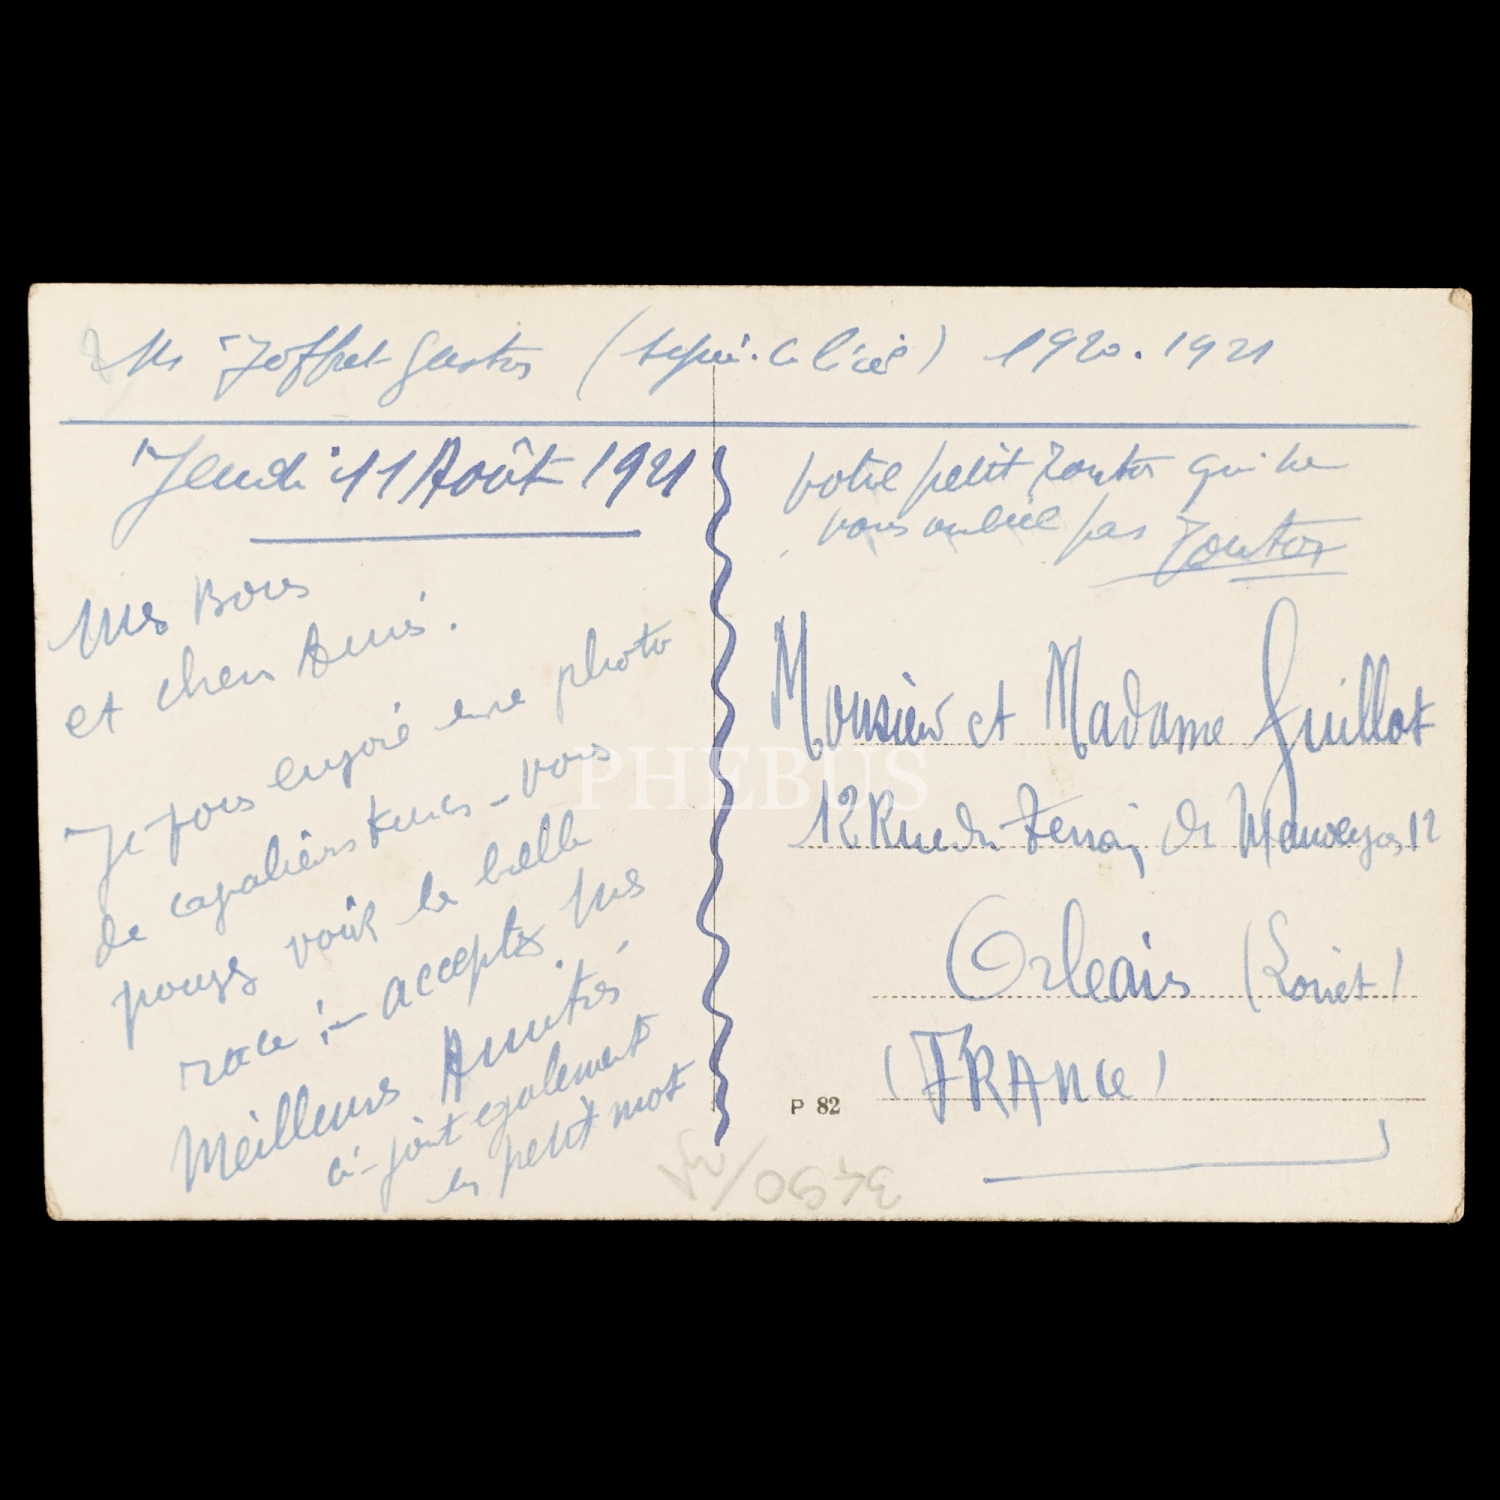 Joffret Gaston ( ) 1920. 1921
Jeudi 11 Août 1921
Mes Bons
et chers Amis.
Je vous envoie une photo
de cavaliers turcs - vous
pouvez voir la belle
race :- acceptez mes
Meilleures Amitiés
ci-joint egalement
un petit mot
votre petit Toutou qui ne
vous oublie pas Toutou
Monsieur et Madame Guillot
12 Rue du 12
Orleans (Loiret)
(FRANCE)
P 82
3490/
PHEBUS